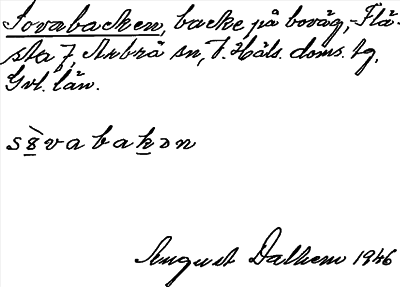 Sovabacken, backe på boväg, Flä-
sta 7, Arbrå sn, V. Häls. doms. tg,
Gvl. län.
sòvabakən
August Dalhem 1946